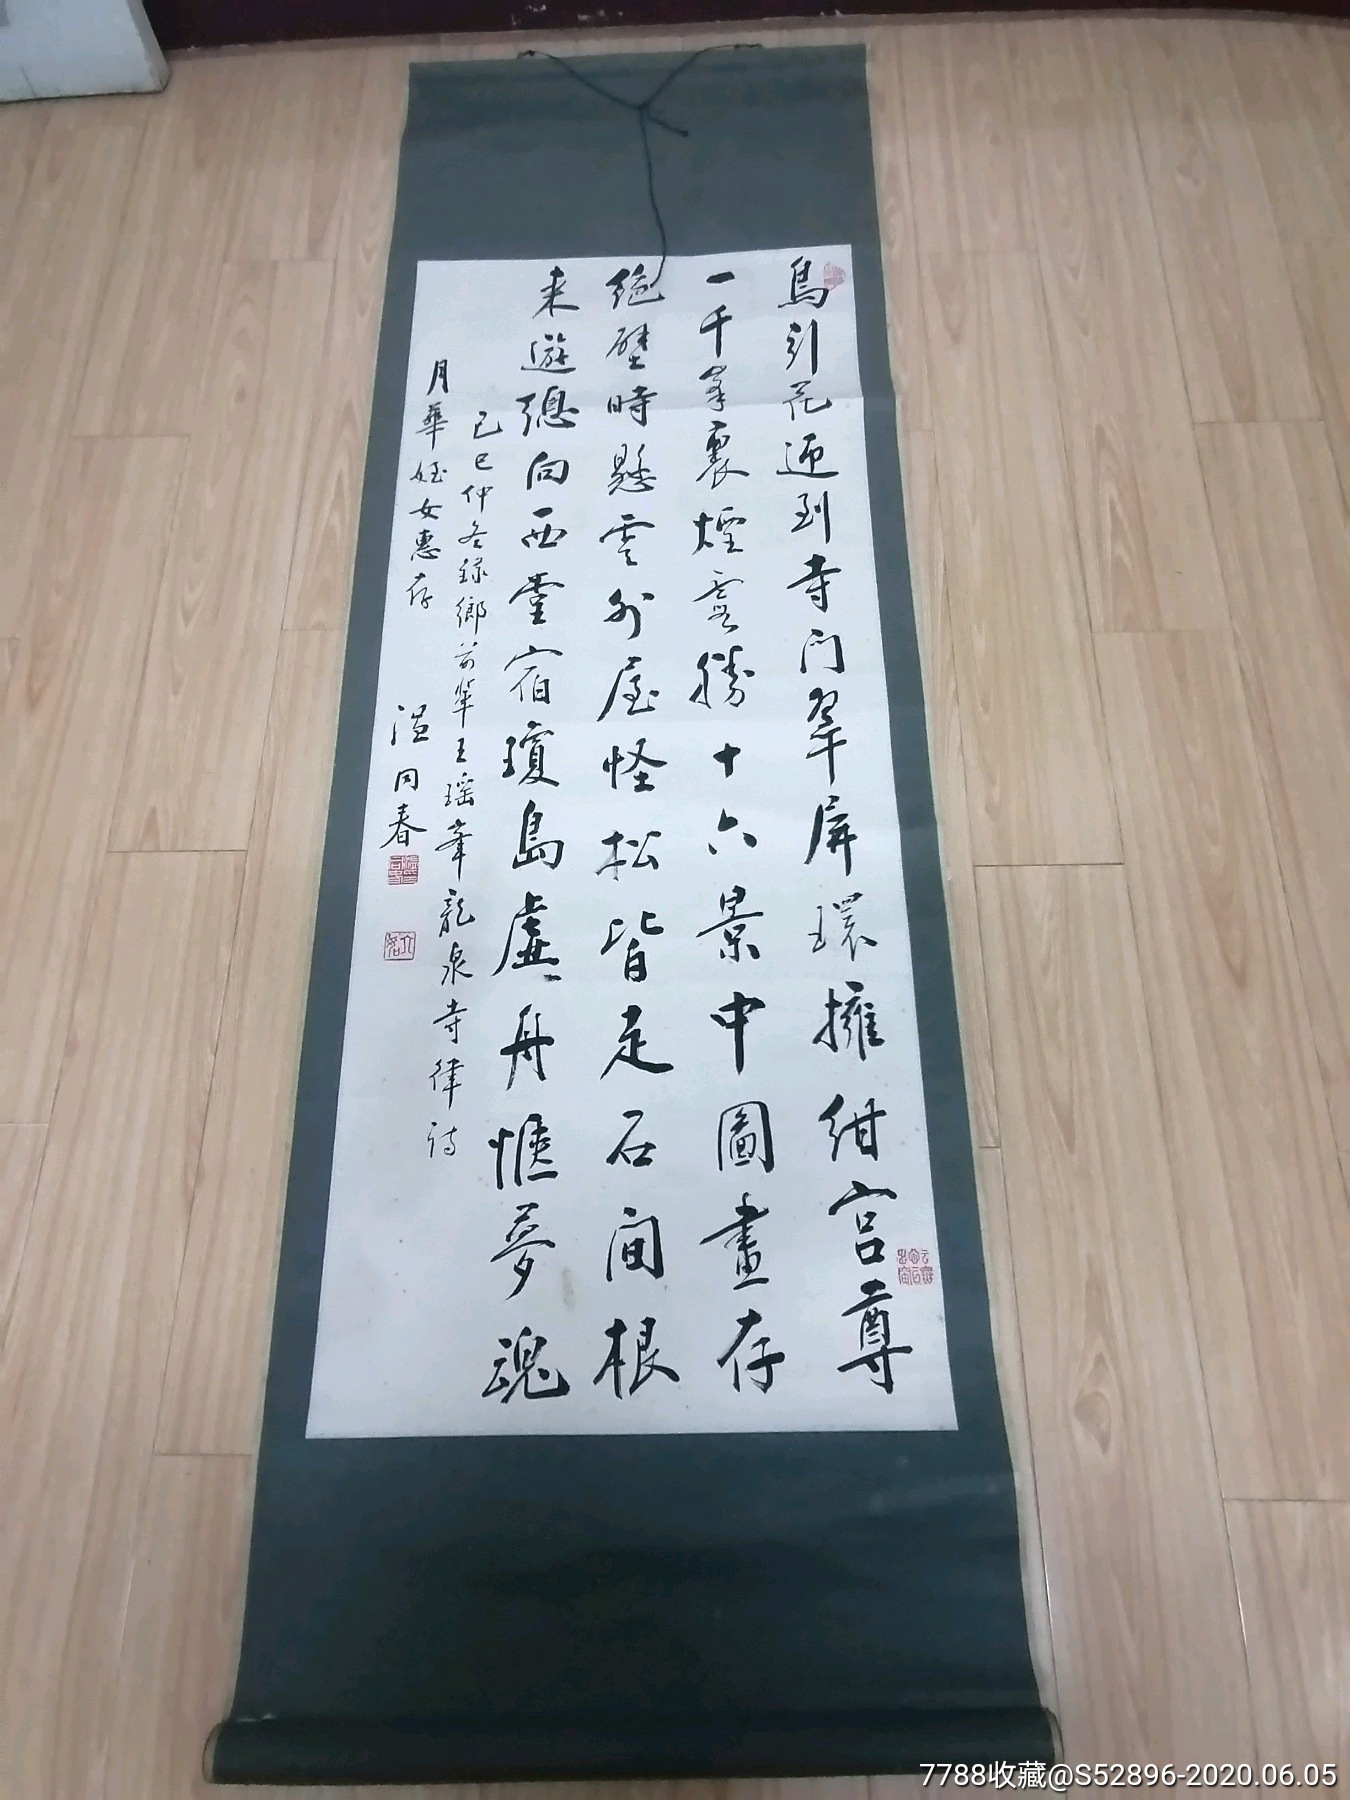 鳥引花迎到寺门翠屏環擁紺宫尊
一千峯裏煙雲勝十六景中圖畫存
絶壁時懸雲外屋怪松皆走石间根
来遊總向西堂宿瓊島虚舟愜夢魂
己巳仲冬録鄉前辈王瑶峯龍泉寺律诗
月華姪女惠存
温同春
7788收藏@S52896-2020.06.05